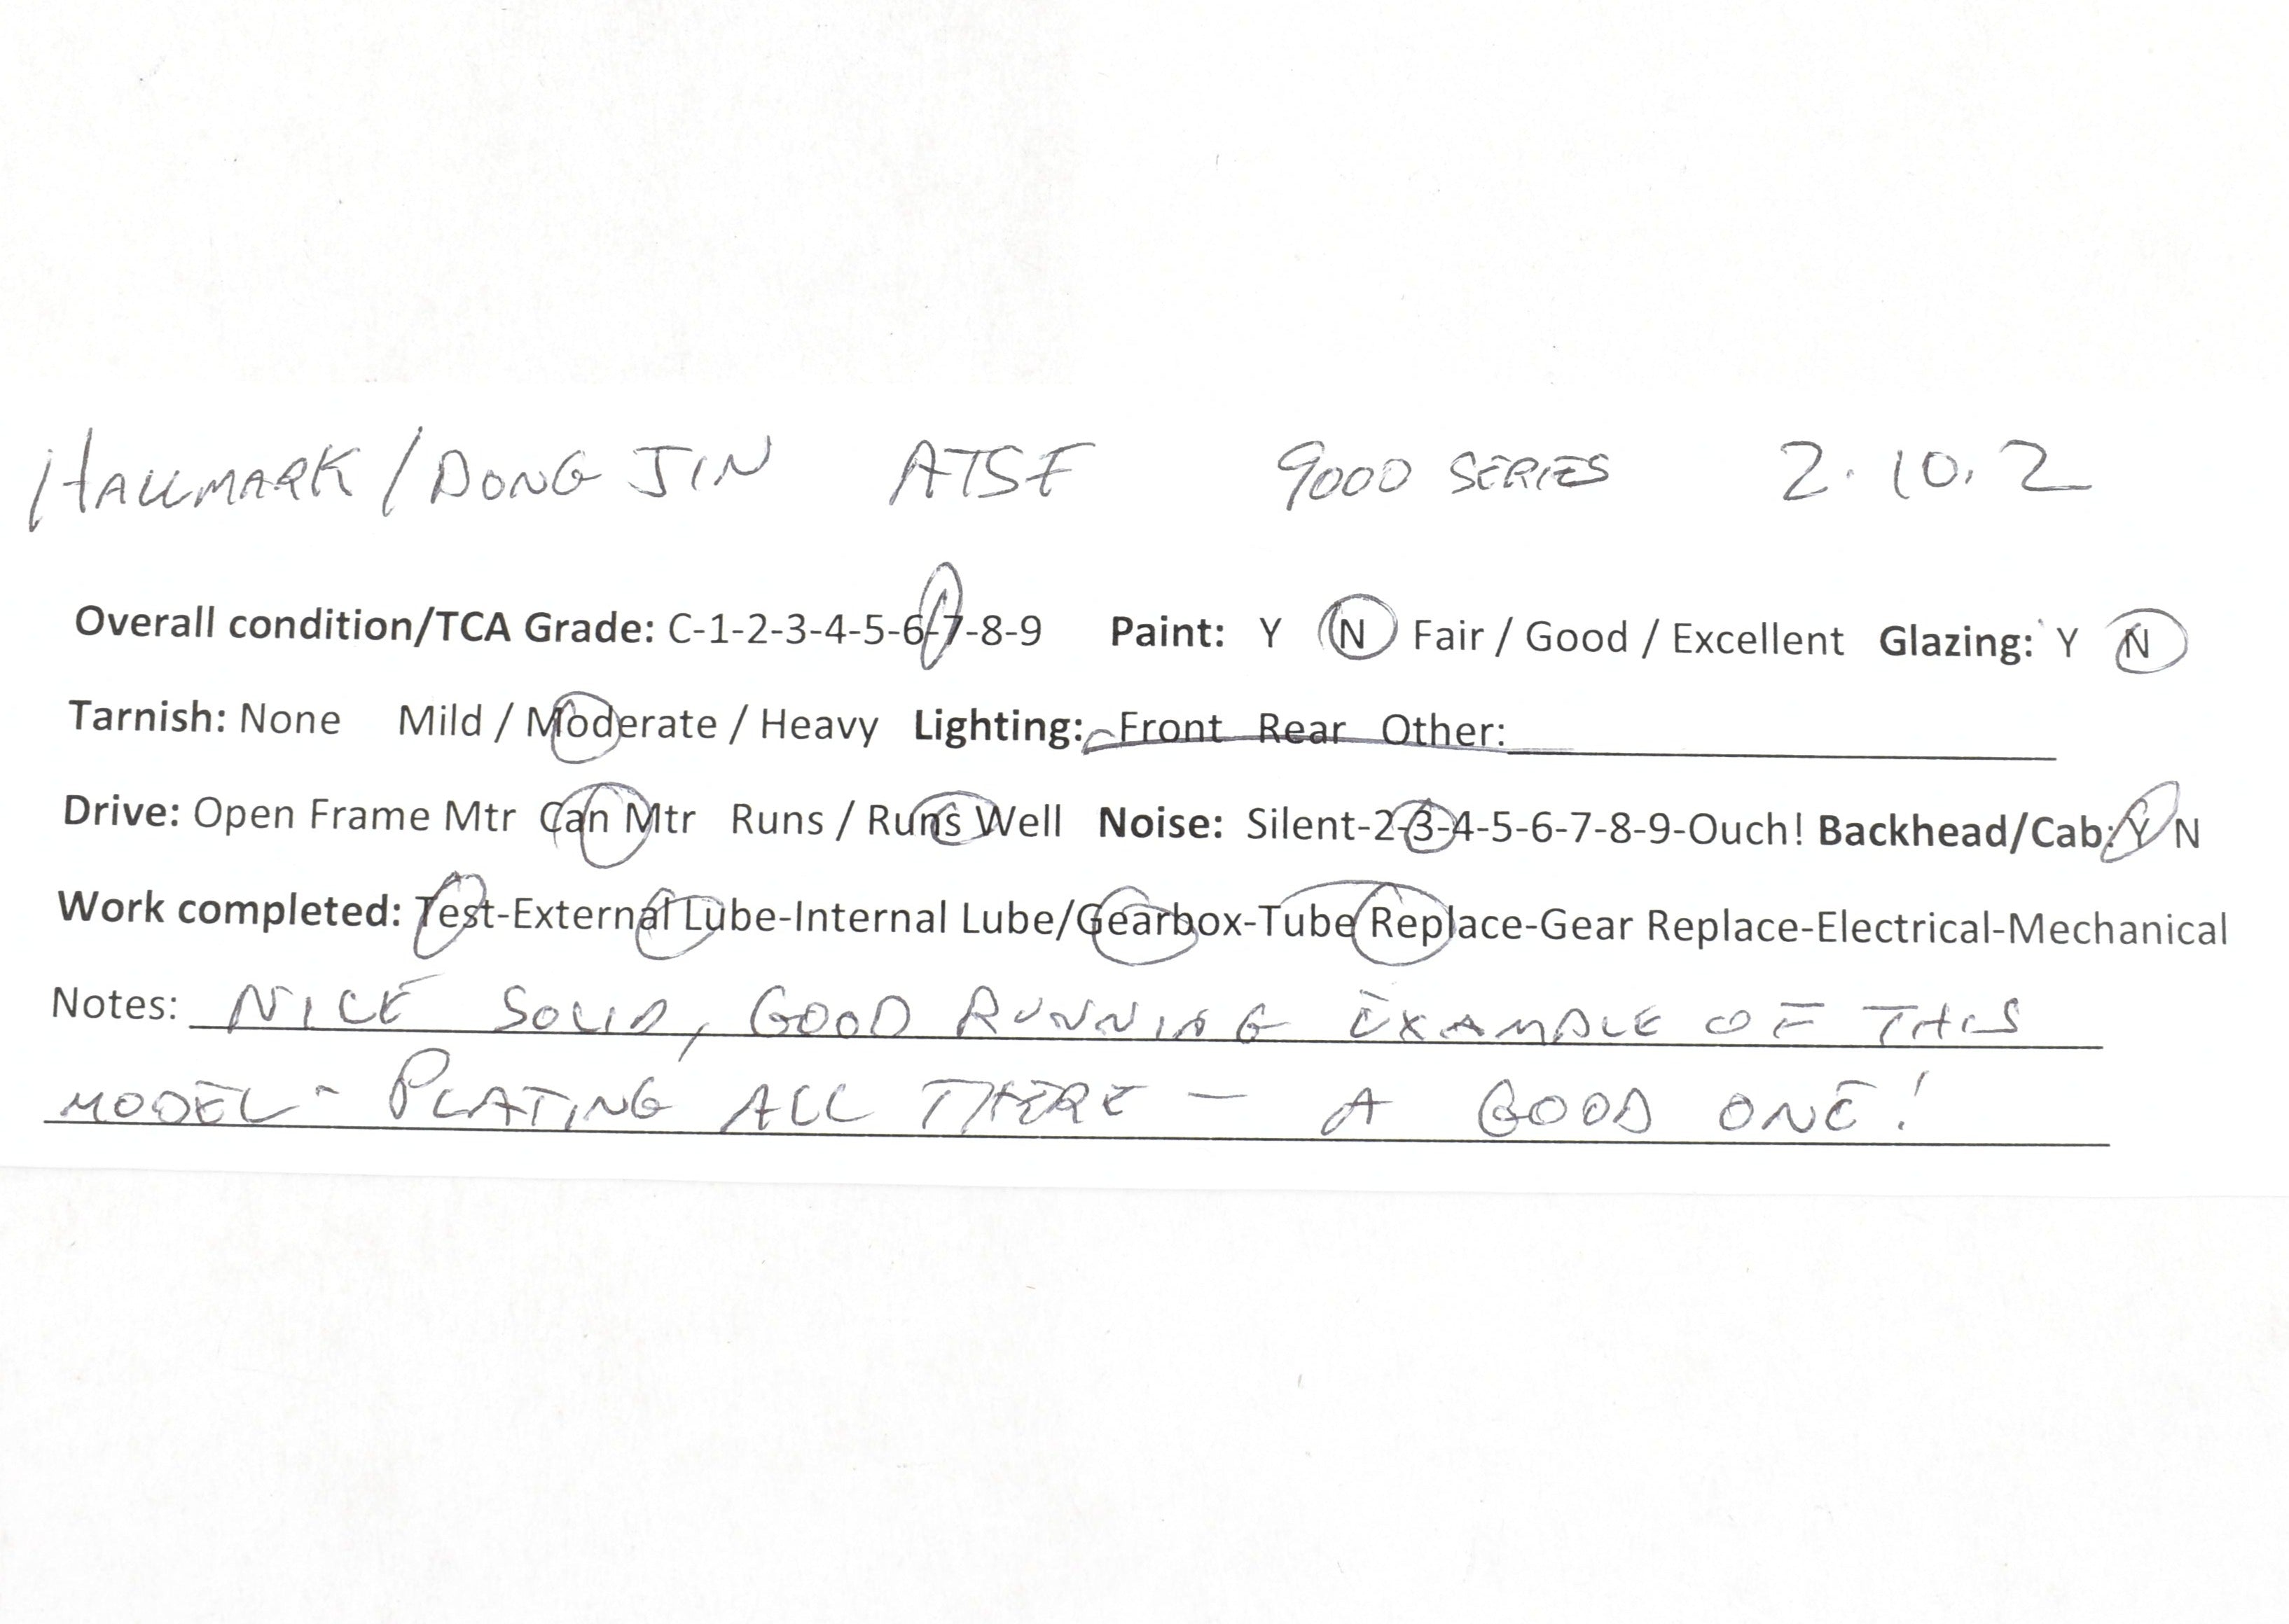 HALLMARK / DONG JIN ATSF 9000 SERIES 2.10.2
Overall condition/TCA Grade: C-1-2-3-4-5-6-7-8-9 Paint: Y N Fair / Good / Excellent Glazing: Y N
Tarnish: None Mild / Moderate / Heavy Lighting: Front Rear Other:
Drive: Open Frame Mtr Can Mtr Runs / Runs Well Noise: Silent-2-3-4-5-6-7-8-9-Ouch! Backhead/Cab: Y N
Work completed: Test-External Lube-Internal Lube/Gearbox-Tube Replace-Gear Replace-Electrical-Mechanical
Notes: NICE SOLID, GOOD RUNNING EXAMPLE OF THIS
MODEL - PLATING ALL THERE - A GOOD ONE!